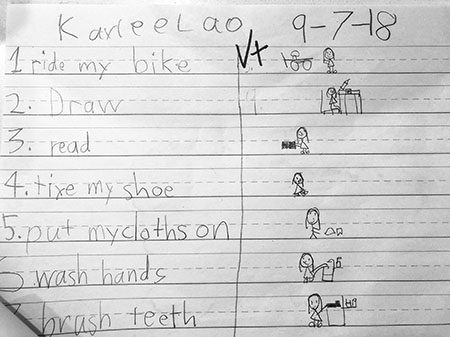 Karlee Lao 9-7-18
1 ride my bike √+
2. Draw
3. read
4. tixe my shoe
5. put my cloths on
6 wash hands
7. brush teeth